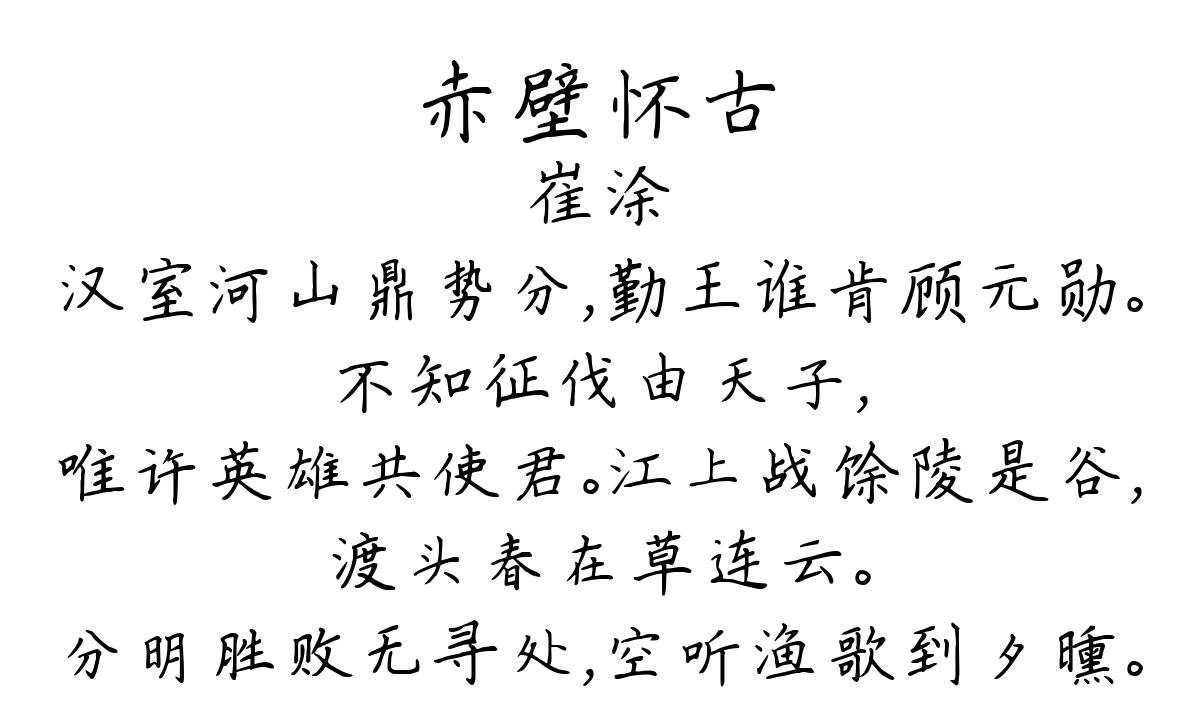 赤壁怀古
崔涂
汉室河山鼎势分,勤王谁肯顾元勋。
不知征伐由天子,
唯许英雄共使君。江上战馀陵是谷,
渡头春在草连云。
分明胜败无寻处,空听渔歌到夕曛。